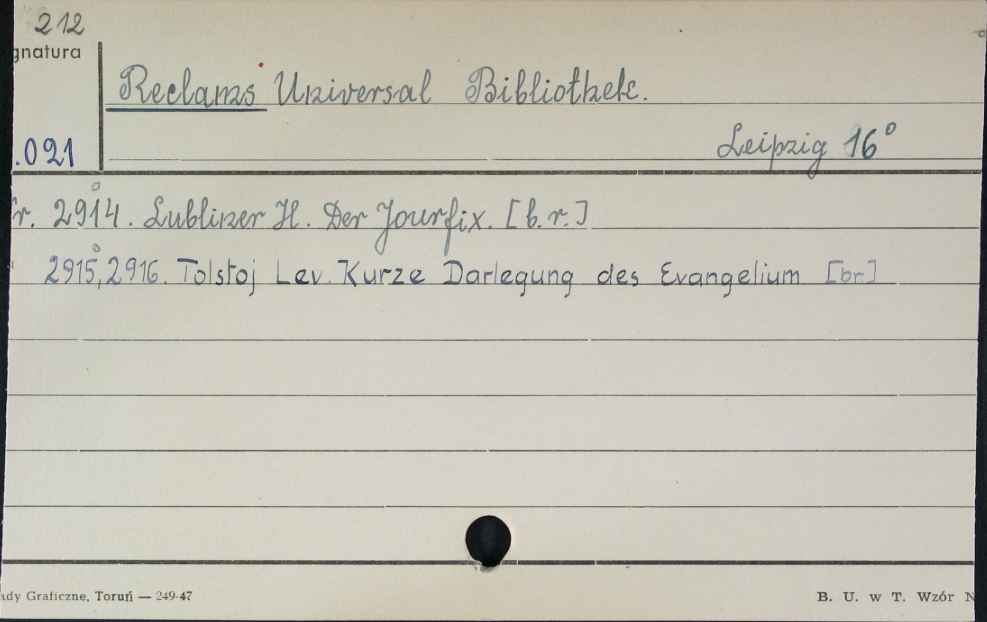 212
gnatura
Reclams Universal Bibliothek.
.021
Leipzig 16°
r. 2914. Lubliner H. Der Jourfix. [b.r.]
2915, 2916. Tolstoj Lev. Kurze Darlegung des Evangelium [br]
ady Graficzne, Toruń — 249-47
B. U. w T. Wzór N